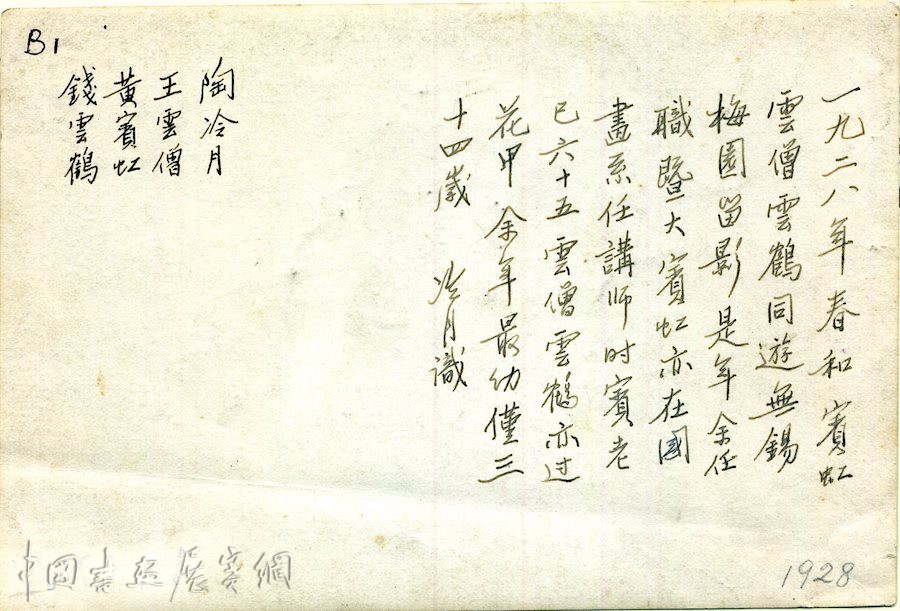 B1
一九二八年春和賓虹
雲僧雲鶴同遊無錫
梅園留影是年余任
職暨大賓虹亦在國
畫系任講师时賓老
已六十五雲僧雲鶴亦过
花甲余年最幼僅三
十四歲 冷月識
陶冷月
王雲僧
黃賓虹
錢雲鶴
中國書畫展賽網
1928